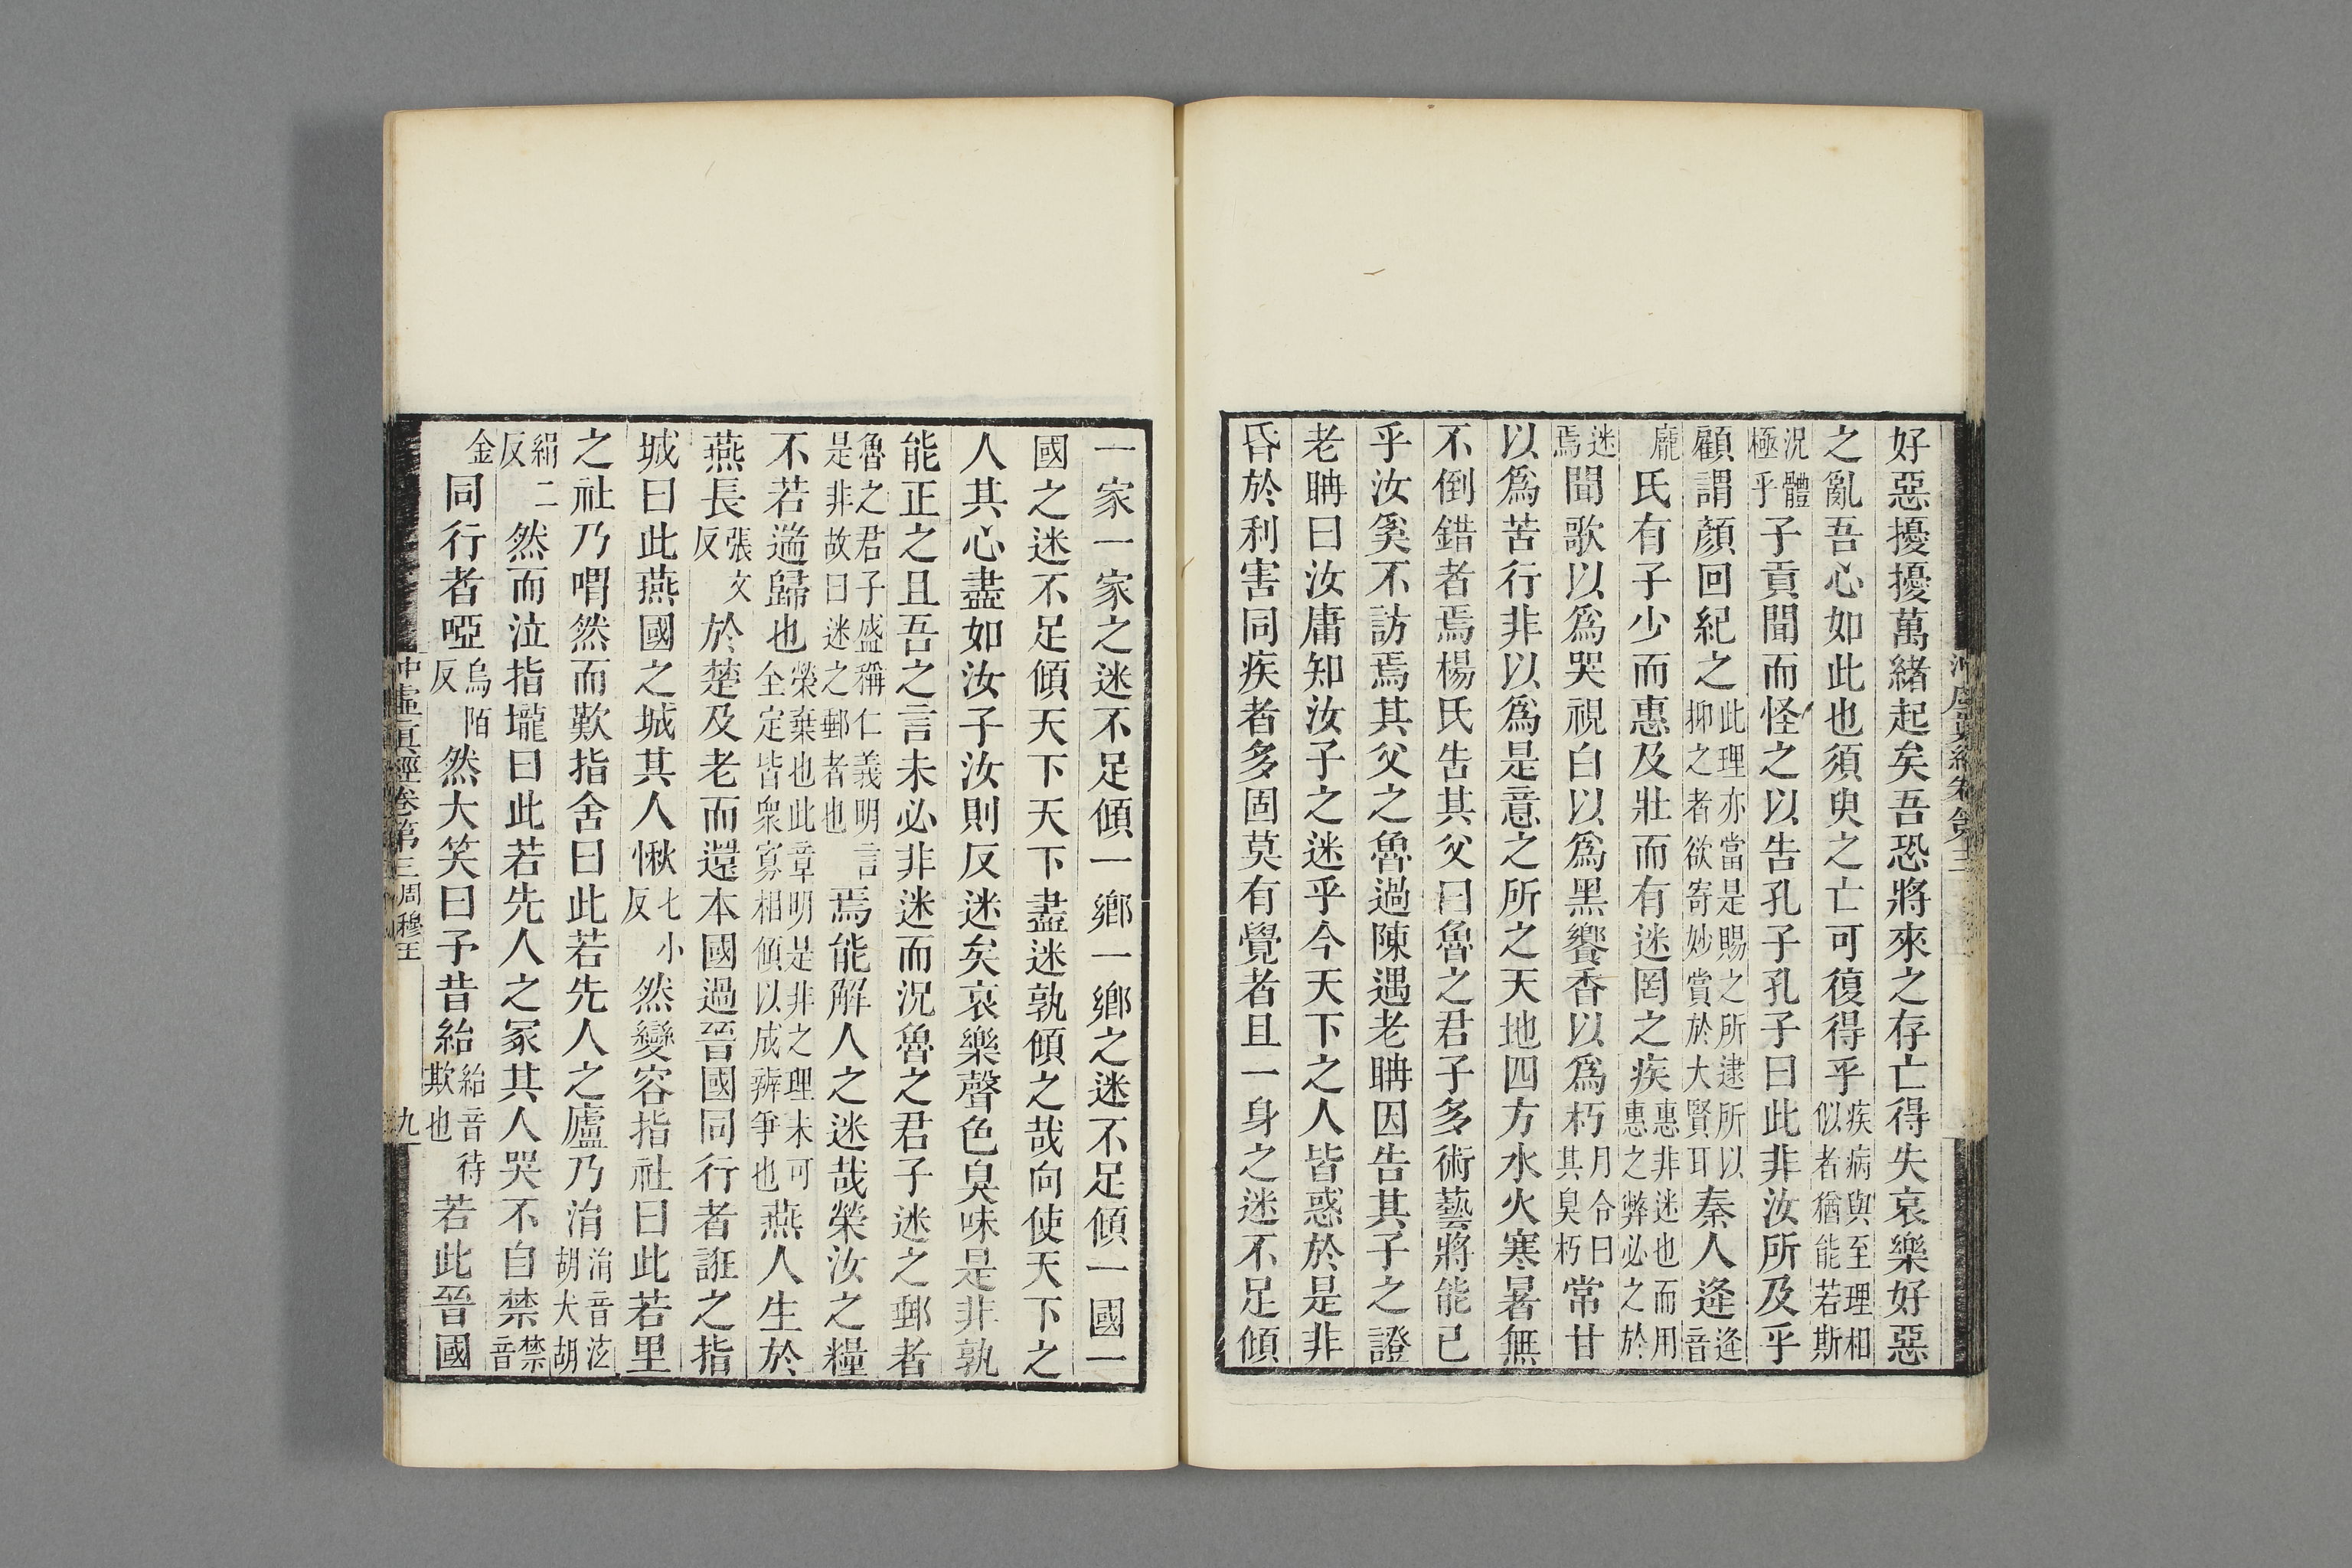 好惡擾擾萬緒起矣吾恐將來之存亡得失哀樂好惡
之亂吾心如此也須臾之亡可復得乎疾病與至理相似者猶能若斯
況體極乎子貢聞而怪之以告孔子孔子曰此非汝所及乎
顧謂顏回紀之此理亦當是賜之所逮所以抑之者欲寄妙賞於大賢耳秦人逢逢音
龐氏有子少而惠及壯而有迷罔之疾惠非迷也而用惠之弊必之於
迷焉聞歌以爲哭視白以爲黑饗香以爲朽月令曰其臭朽常甘
以爲苦行非以爲是意之所之天地四方水火寒暑無
不倒錯者焉楊氏告其父曰魯之君子多術藝將能已
乎汝奚不訪焉其父之魯過陳遇老聃因告其子之證
老聃曰汝庸知汝子之迷乎今天下之人皆惑於是非
昏於利害同疾者多固莫有覺者且一身之迷不足傾
一家一家之迷不足傾一鄉一鄉之迷不足傾一國一
國之迷不足傾天下天下盡迷孰傾之哉向使天下之
人其心盡如汝子汝則反迷矣哀樂聲色臭味是非孰
能正之且吾之言未必非迷而況魯之君子迷之郵者
魯之君子盛稱仁義明言是非故曰迷之郵者也焉能解人之迷哉榮汝之糧
不若遄歸也榮棄也此章明是非之理未可全定皆衆寡相傾以成辨爭也燕人生於
燕長張文反於楚及老而還本國過晉國同行者誑之指
城曰此燕國之城其人愀七小反然變容指社曰此若里
之社乃喟然而歎指舍曰此若先人之廬乃涓涓音泫胡犬胡
絹二反然而泣指壠曰此若先人之冢其人哭不自禁禁音
金同行者啞烏陌反然大笑曰予昔紿紿音待欺也若此晉國
冲虛真經卷第三 周穆王 九